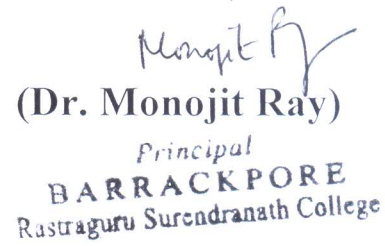 Monojit Ray
(Dr. Monojit Ray)
Principal
BARRACKPORE
Rastraguru Surendranath College